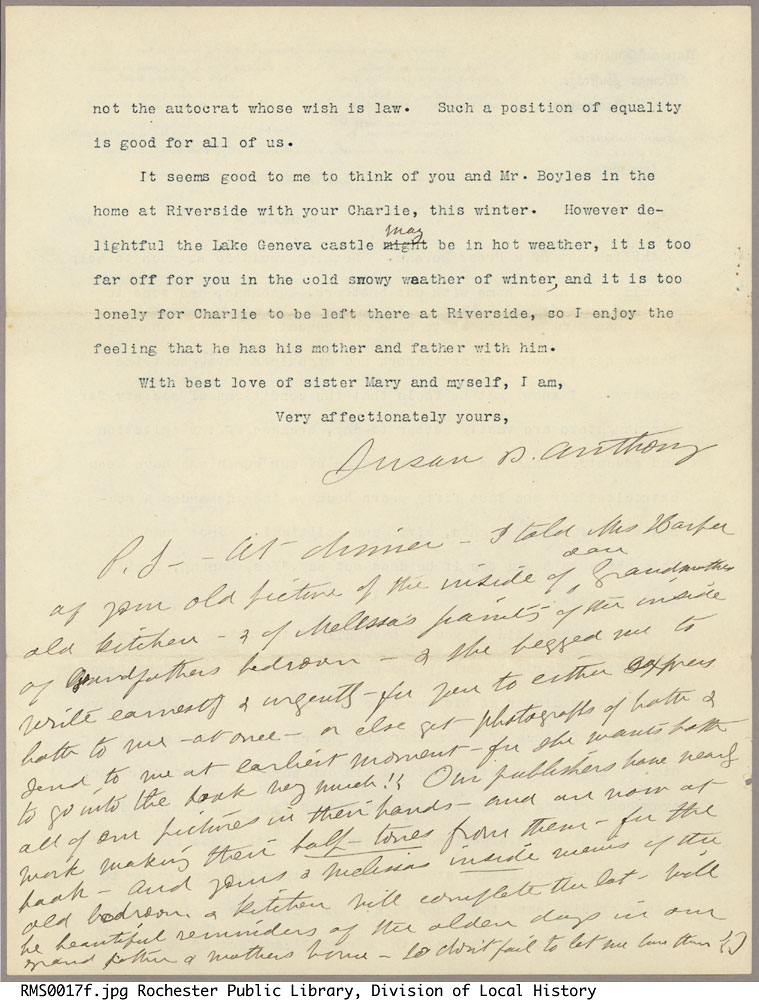 not the autocrat whose wish is law. Such a position of equality
is good for all of us.
It seems good to me to think of you and Mr. Boyles in the
home at Riverside with your Charlie, this winter. However de-
may
lightful the Lake Geneva castle might be in hot weather, it is too
far off for you in the cold snowy weather of winter, and it is too
lonely for Charlie to be left there at Riverside, so I enjoy the
feeling that he has his mother and father with him.
With best love of sister Mary and myself, I am,
Very affectionately yours,
Susan B. Anthony
P. S. - At dinner - I told Mrs Harper
of your old picture of the inside of dear Grandmothers
old kitchen - & of Melissa's paints of the inside
of Grandfathers bedroom - & she begged me to
write earnestly & urgently - for you to either express
both to me - at once - or else get photographs of both &
send to me at earliest moment - for she wants both
to go into the book very much!! Our publishers have nearly
all of our pictures in their hands - and are now at
work making their half-tones from them - for the
book - And yours & Melissa's inside views of the
old bedroom & kitchen will complete the lot - will
be beautiful reminders of the olden days in our
grand father & mothers home - So don't fail to let me have them
RMS0017f.jpg Rochester Public Library, Division of Local History